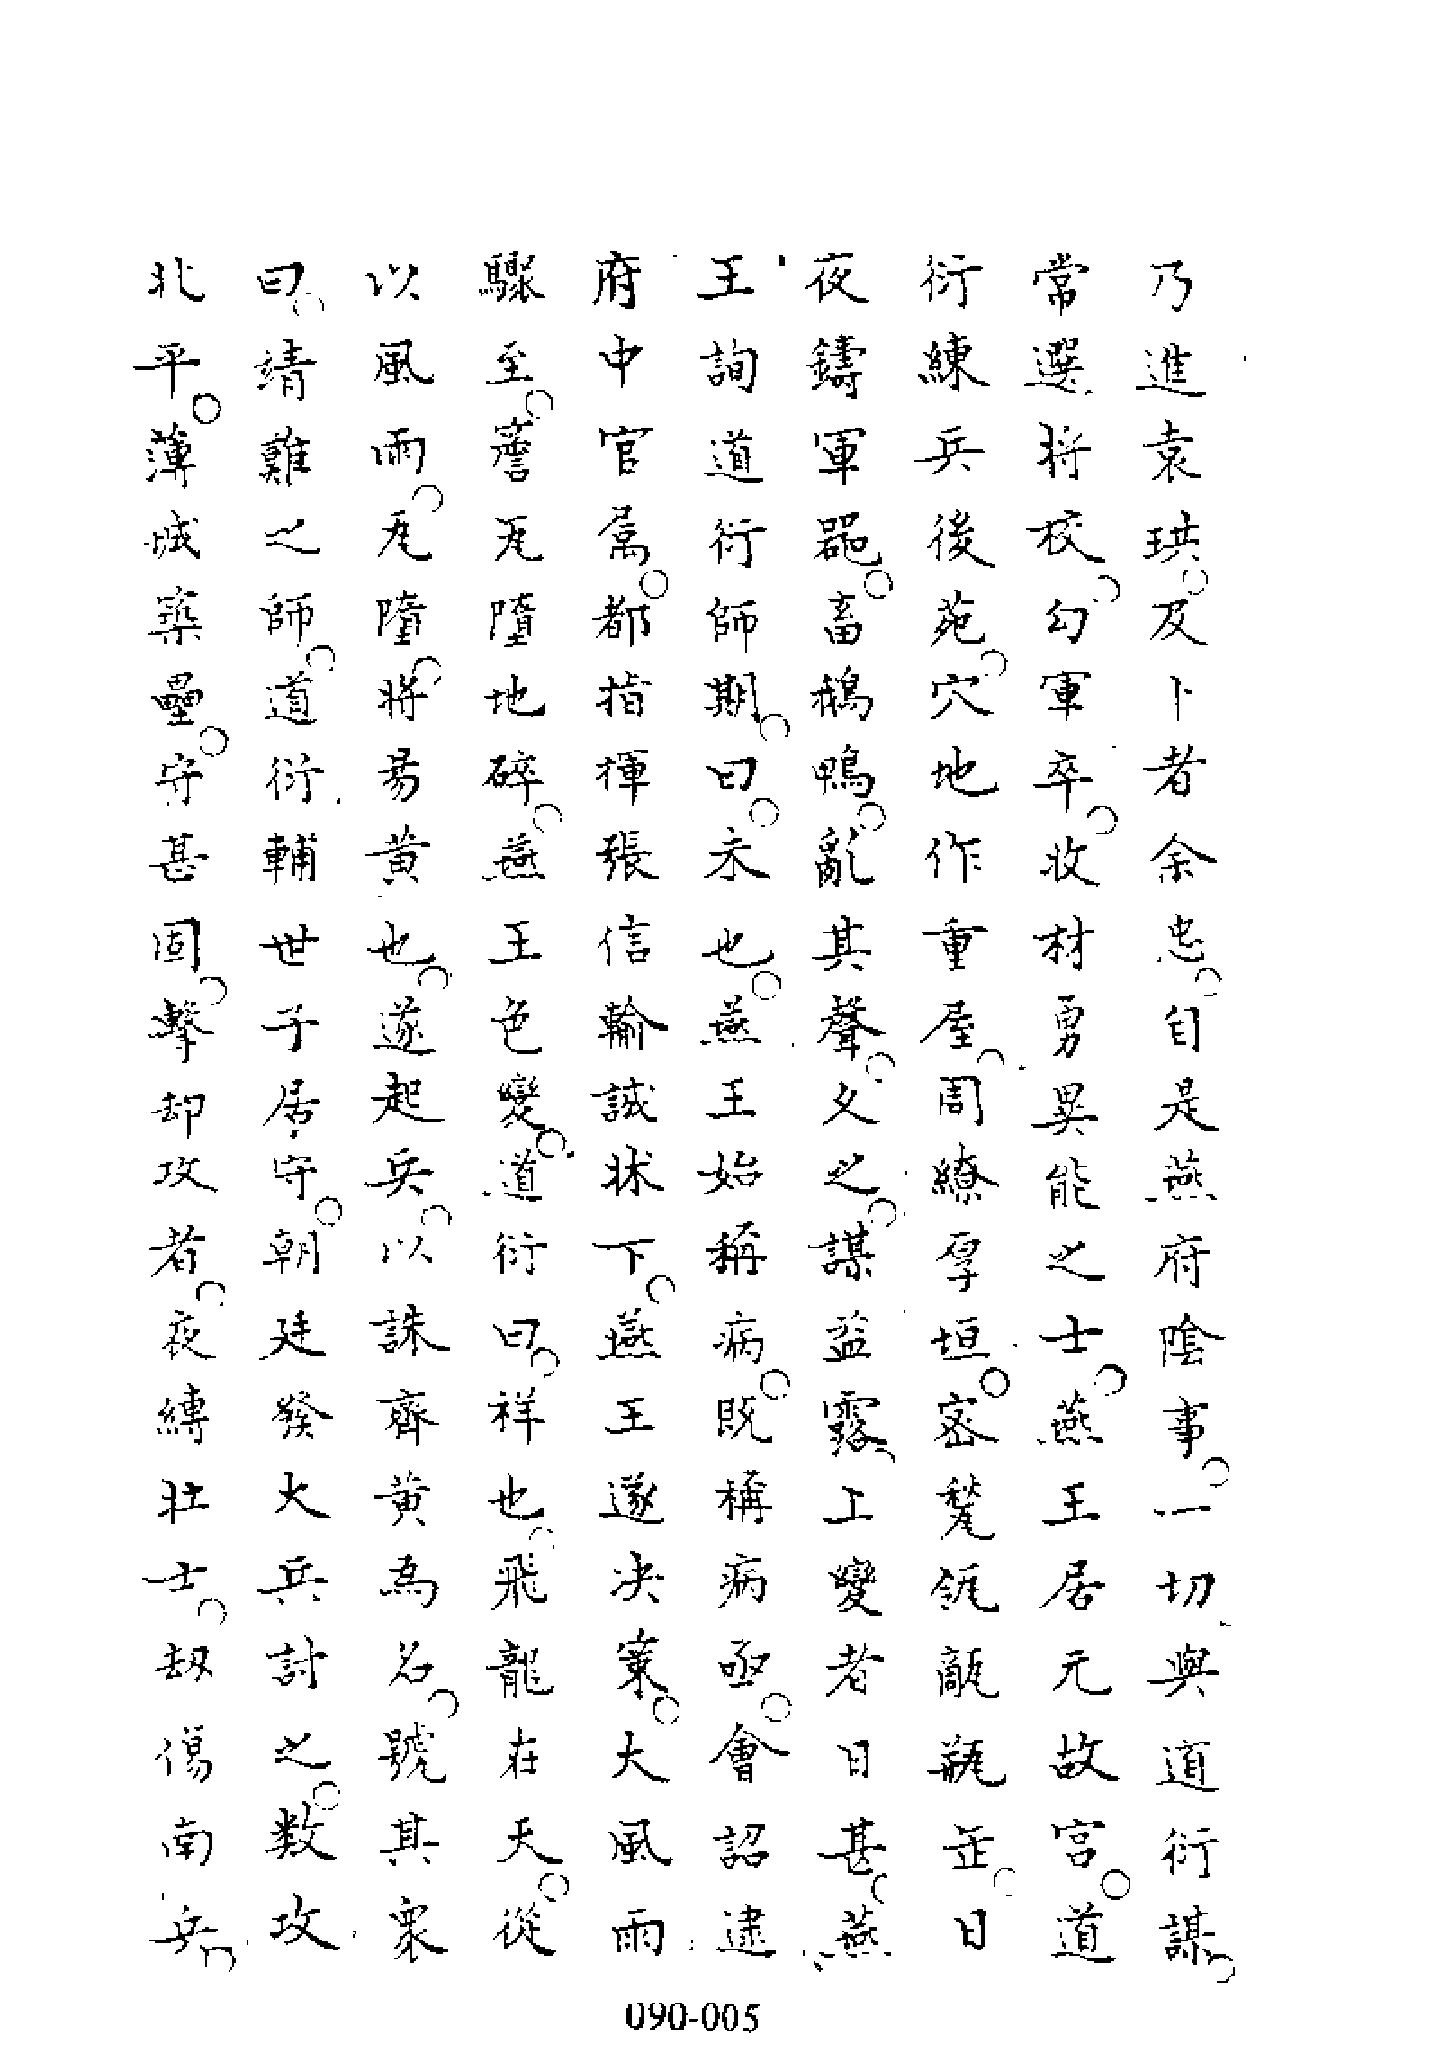 乃進袁珙。及卜者余忠。自是燕府陰事。一切與道衍謀。
常選將校。勾軍卒。收材勇異能之士。燕王居元故宮。道
衍練兵後苑。穴地作重屋。周繚厚垣。密甃瓴甋瓶缶。日
夜鑄軍器。畜鵝鴨。亂其聲。久之。謀益露。上變者日甚。燕
王詢道衍師期。曰。未也。燕王始稱病。既稱病亟。會詔逮
府中官屬。都指揮張信輸誠狀下。燕王遂決策。大風雨
驟至。簷瓦墮地碎。燕王色變。道衍曰。祥也。飛龍在天。從
以風雨。瓦墮。將易黃也。遂起兵。以誅齊黃為名。號其眾
曰。靖難之師。道衍輔世子居守。朝廷發大兵討之。數攻
北平。薄城築壘。守甚固。擊却攻者。夜縛壯士。劫傷南兵。
090-005